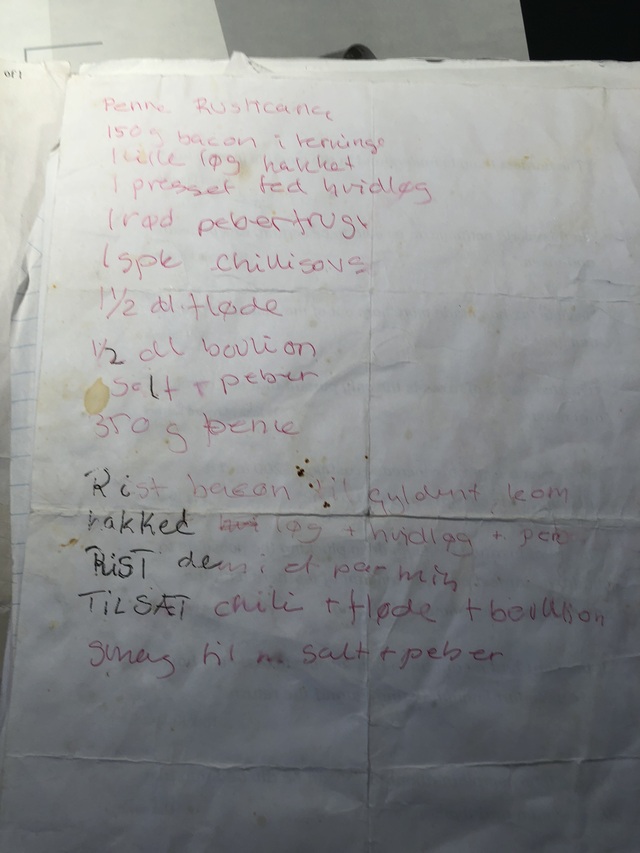 Penne Rusticana
150 g bacon i terninge
1 lille løg hakket
1 presset fed hvidløg
1 rød peberfrugt
1 spk chillisovs
1 1/2 dl. fløde
1/2 dl boulion
Salt + peber
350 g penne
Rist bacon til gyldent. kom
hakked løg + hvidløg + peb
RiST dem i et par min
TiLSÆT chili + fløde + boullion
Smag til m salt + peber